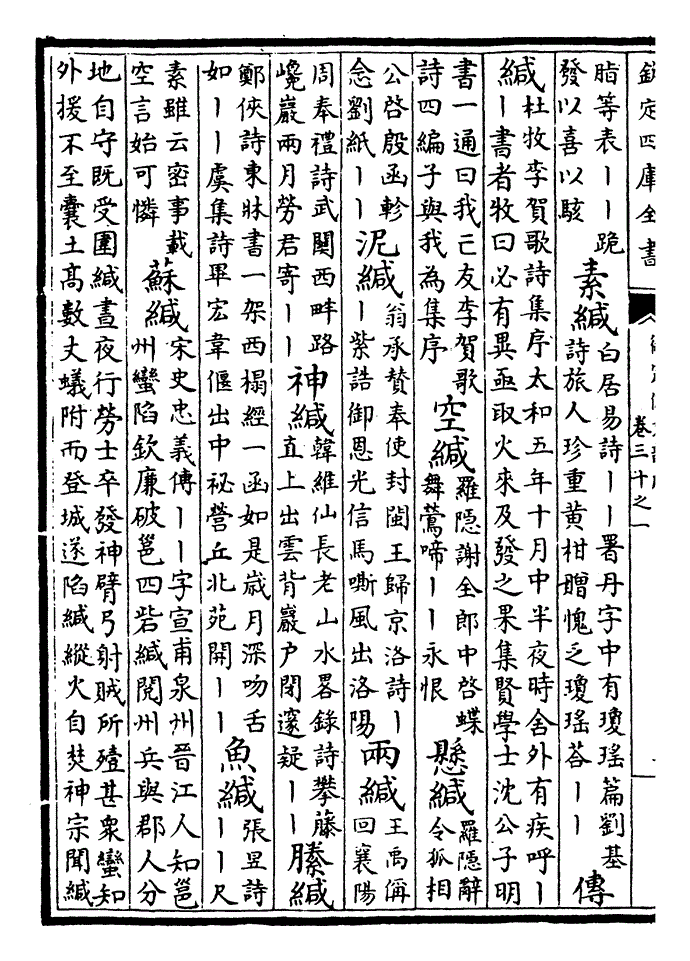 欽定四庫全書
卷三十之一
脂等表丨丨跪
發以喜以駭
素緘
白居易詩丨丨署丹字中有瓊瑤篇劉基
詩旅人珍重黃柑贈愧乏瓊瑤荅丨丨
傳
緘
杜牧李賀歌詩集序太和五年十月中半夜時舍外有疾呼丨
丨書者牧曰必有異亟取火來及發之果集賢學士沈公子明
書一通曰我亡友李賀歌
詩四編子與我為集序
空緘
羅隠謝全郎中啓蝶
舞鶯啼丨丨永恨
懸緘
羅隠辭
令狐相
公啓殷函軫
念劉紙丨丨
泥緘
翁承贊奉使封閩王歸京洛詩丨
丨紫誥御恩光信馬嘶風出洛陽
兩緘
王禹偁
回襄陽
周奉禮詩武關西畔路
巉巖兩月勞君寄丨丨
神緘
韓維仙長老山水畧錄詩攀藤
直上出雲背巖户閉邃疑丨丨
縢緘
鄭俠詩東牀書一架西榻經一函如是嵗月深吻舌
如丨丨虞集詩畢宏韋偃出中祕營丘北苑開丨丨
魚緘
張昱詩
丨丨尺
素雖云密事載
空言始可憐
蘇緘
宋史忠義傳丨丨字宣甫泉州晉江人知邕
州蠻陷欽廉破邕四砦緘閱州兵與郡人分
地自守既受圍緘晝夜行勞士卒發神臂弓射賊所殪甚衆蠻知
外援不至囊土髙數丈蟻附而登城遂陷緘縱火自焚神宗聞緘